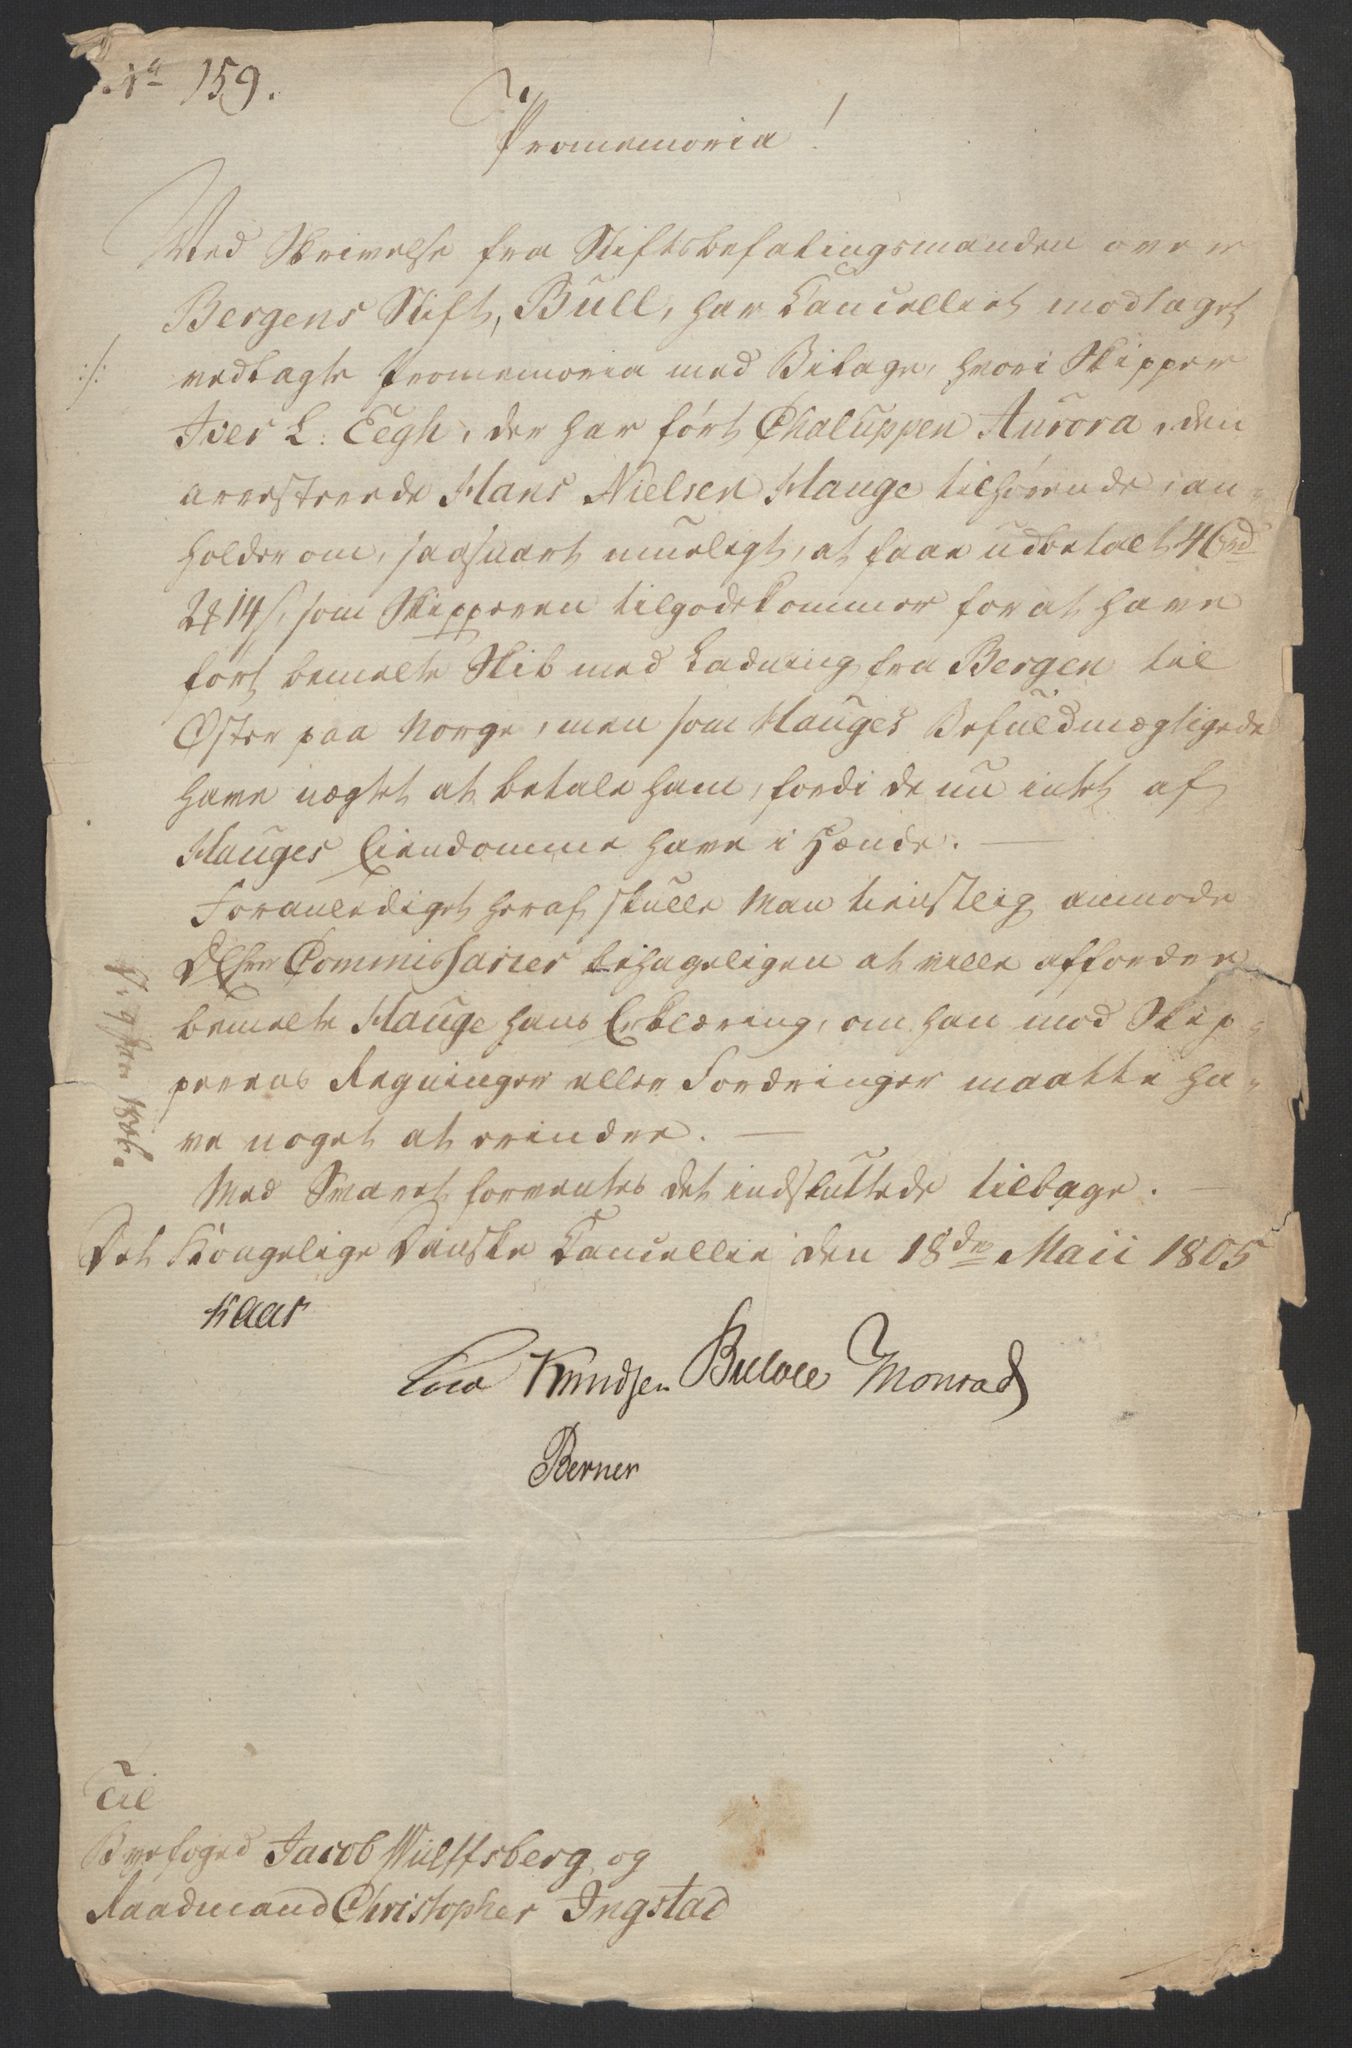 No 159.
Promemoria!
Ved Skrivelse fra Stiftsbefalingsmanden over
Bergens Stift, Bull, har Cancelliet modtaget
:/: vedlagte Promemoria med Bilage, hvori Skipper
Iver L: Eegh, der har ført Chaluppen Aurora, den
arresterede Hans Nielsen Hauge tilhørende, an-
holder om, saasnart mueligt, at faae udbetalt 46 rd
2 ß 14 s, som Skipperen tilgodekommer for at have
ført bemelte Skib med Ladning fra Bergen til
Øster paa Norge, men som Hauges Befuldmægtigede
have nægtet at betale ham, fordi de nu intet af
Hauges Eiendomme have i Hænde. —
Foranlediget heraf skulle Man tienstlig anmode
D Hrr Commissarier behageligen at ville affordre
bemelte Hauge hans Erklæring, om han mod Skip-
perens Regninger eller Fordringer maatte ha-
ve noget at erindre. —
Med Svaret forventes det indsluttede tilbage. —
Det Kongelige Danske Cancellie den 18de Maii 1805
Kaas
Knudsen Bülow Monrad
Berner
Til
Byefoged Jacob Wulffsberg og
Raadmand Christopher Ingstad